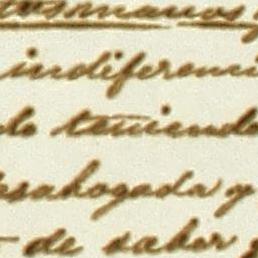 indiferenci
do teniendo
esahogada y
de saber y